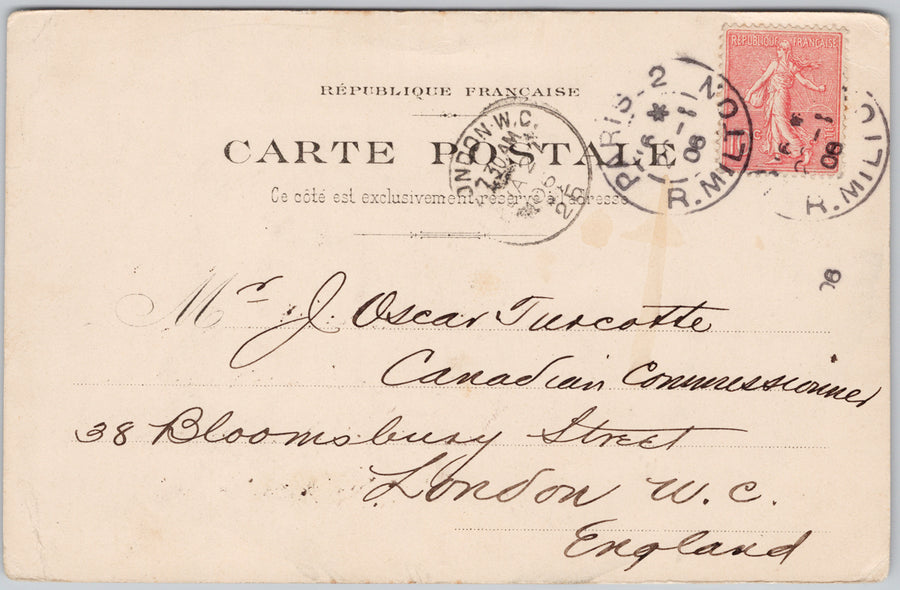 RÉPUBLIQUE FRANÇAISE
CARTE POSTALE
Ce côté est exclusivement réservé à l'adresse
RÉPUBLIQUE FRANÇAISE
PARIS-2
R. MILTON
08
R. MILTO
08
LONDON. W.C.
7.30 AM
25
Mr J. Oscar Turcotte
Canadian Commissionner
38 Bloomsbury Street
London W.C.
England